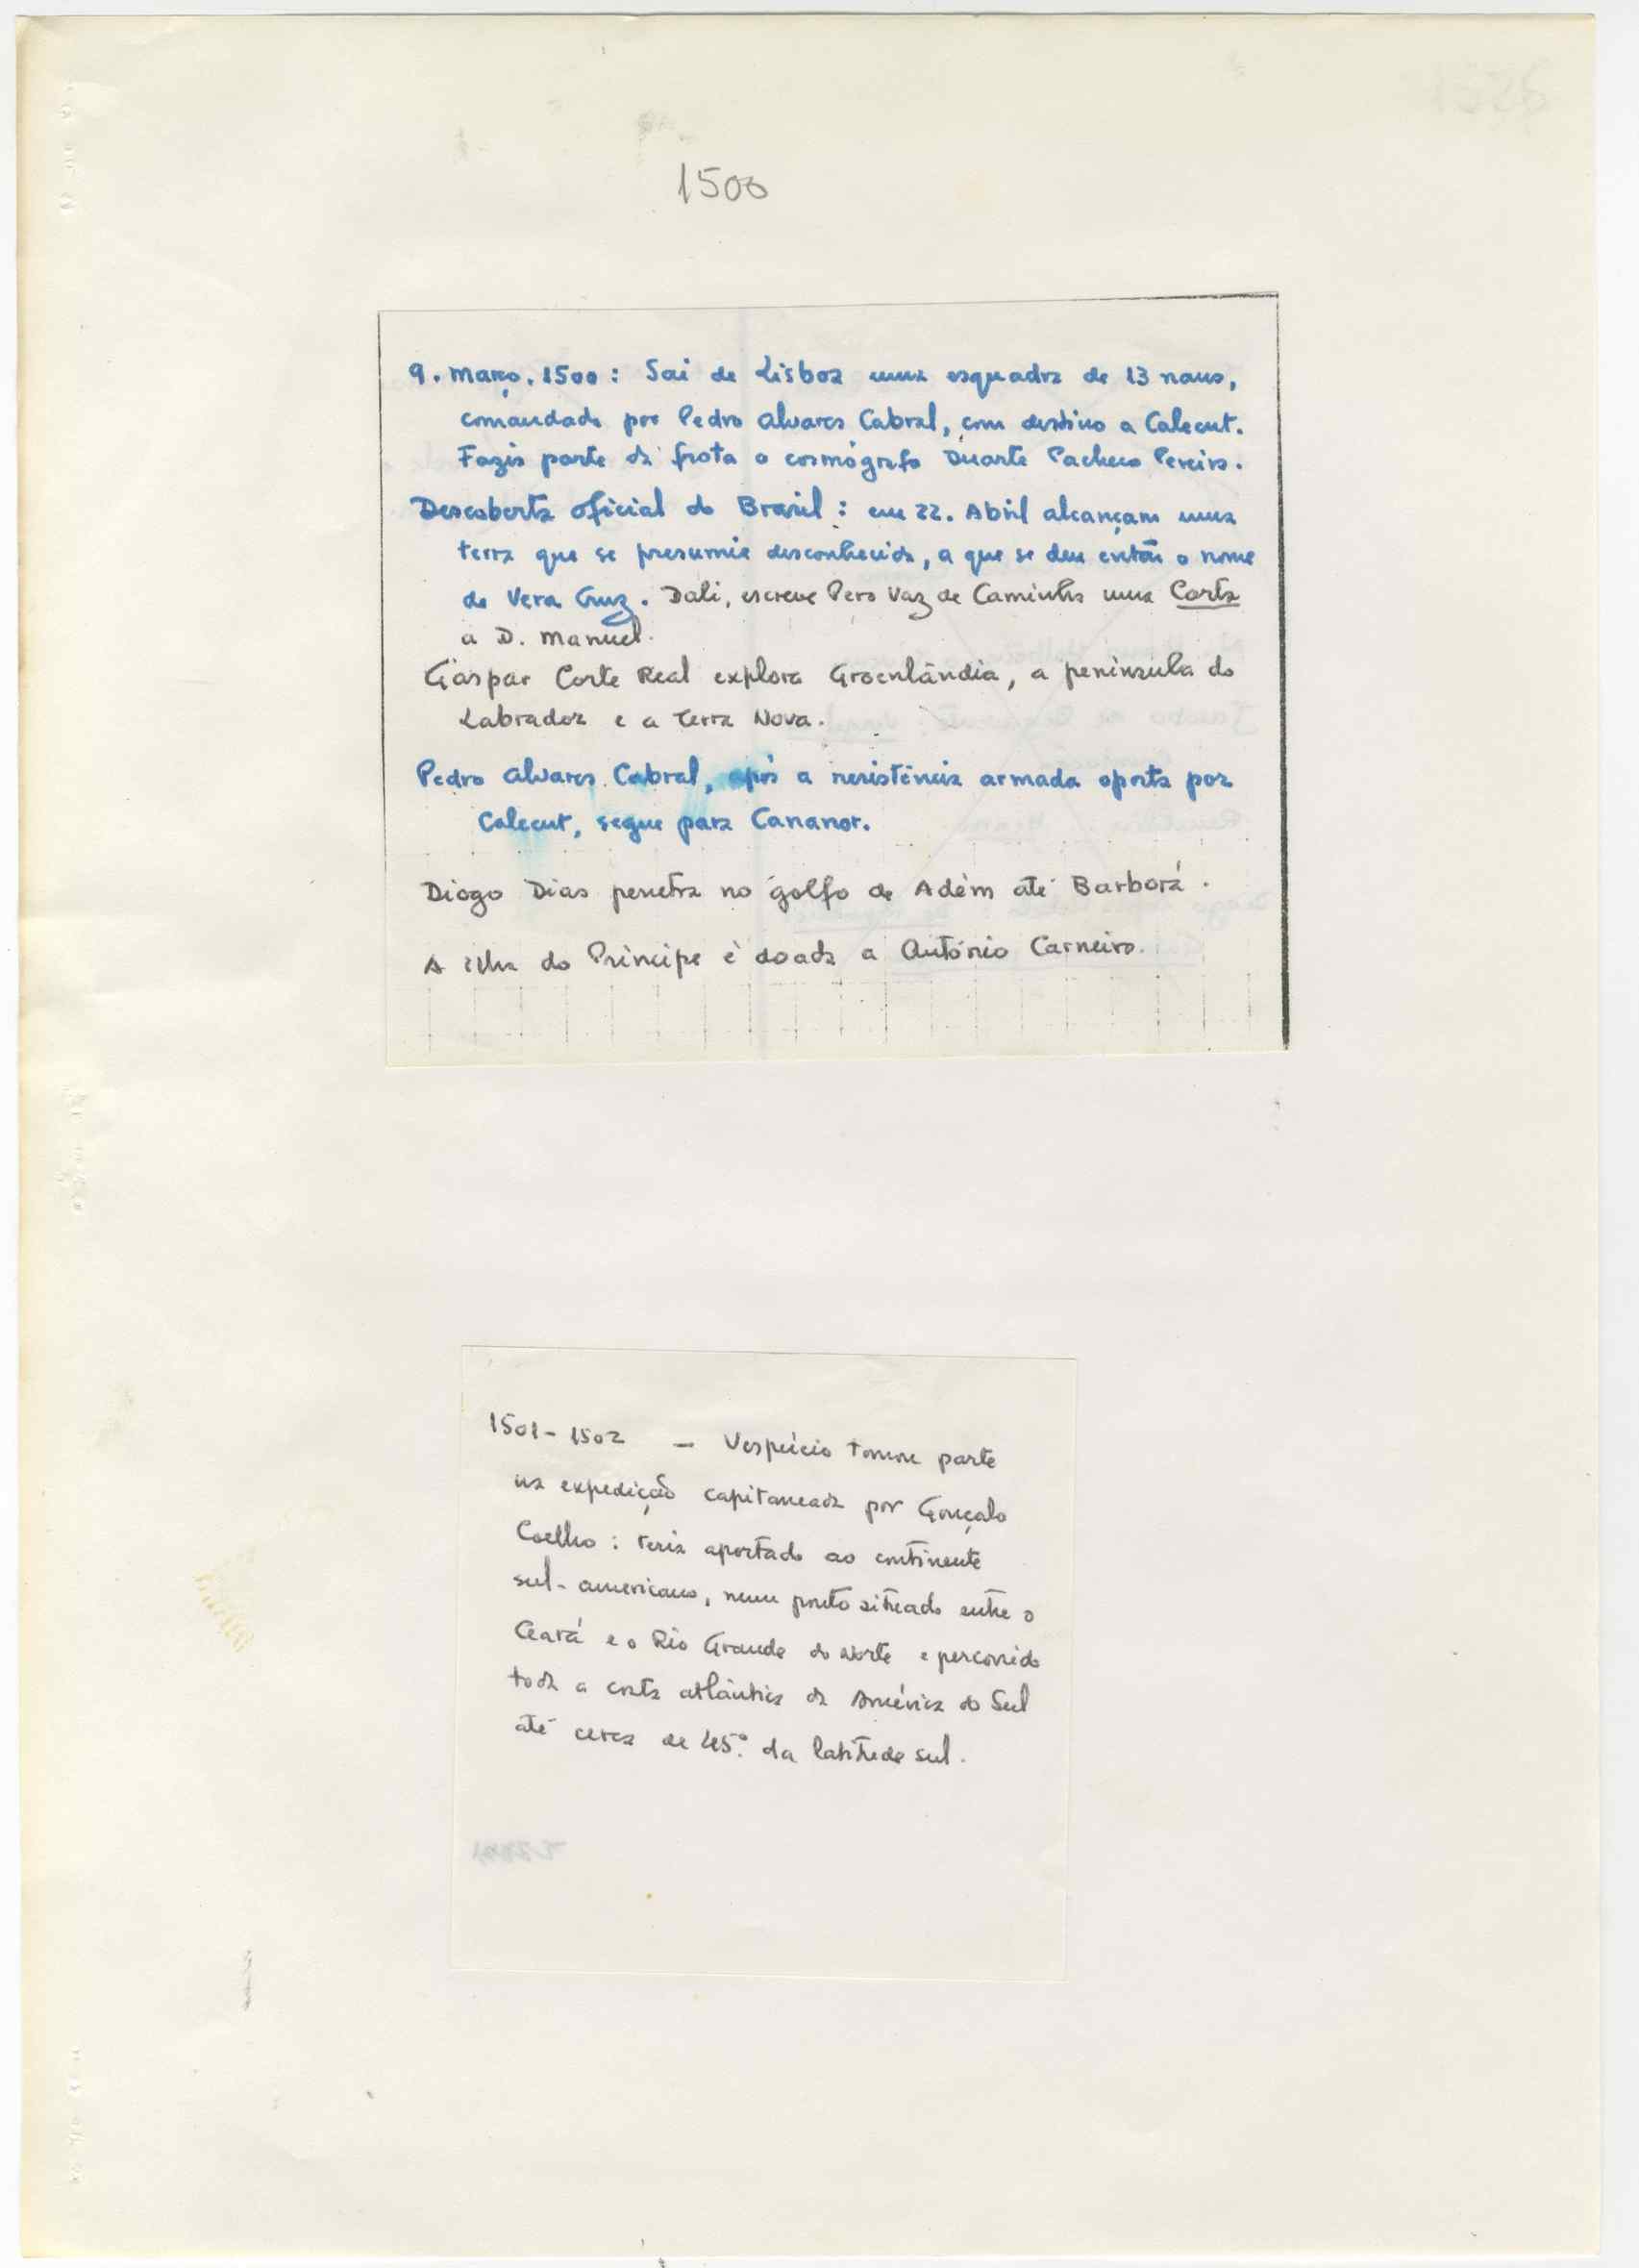 1500
9. Março. 1500: Sai de Lisboa uma esquadra de 13 naus,
comandada por Pedro Alvares Cabral, com destino a Calecut.
Fazia parte da frota o cosmógrafo Duarte Pacheco Pereira.
Descoberta oficial do Brasil: em 22. Abril alcançam uma
terra que se presumia desconhecida, a que se deu então o nome
de Vera Cruz. Dali, escreve Pero Vaz de Caminha uma Carta
a D. Manuel.
Gaspar Corte Real explora Groenlândia, a península do
Labrador e a Terra Nova.
Pedro Alvares Cabral, após a resistência armada oposta por
Calecut, segue para Cananor.
Diogo Dias penetra no golfo de Adém até Barborá.
A ilha do Príncipe é doada a António Carneiro.
1501-1502 – Vespúcio tomou parte
na expedição capitaneada por Gonçalo
Coelho: teria aportado ao continente
sul-americano, num ponto situado entre o
Ceará e o Rio Grande do Norte e percorrido
toda a costa atlântica da América do Sul
até cerca de 45.º da latitude sul.